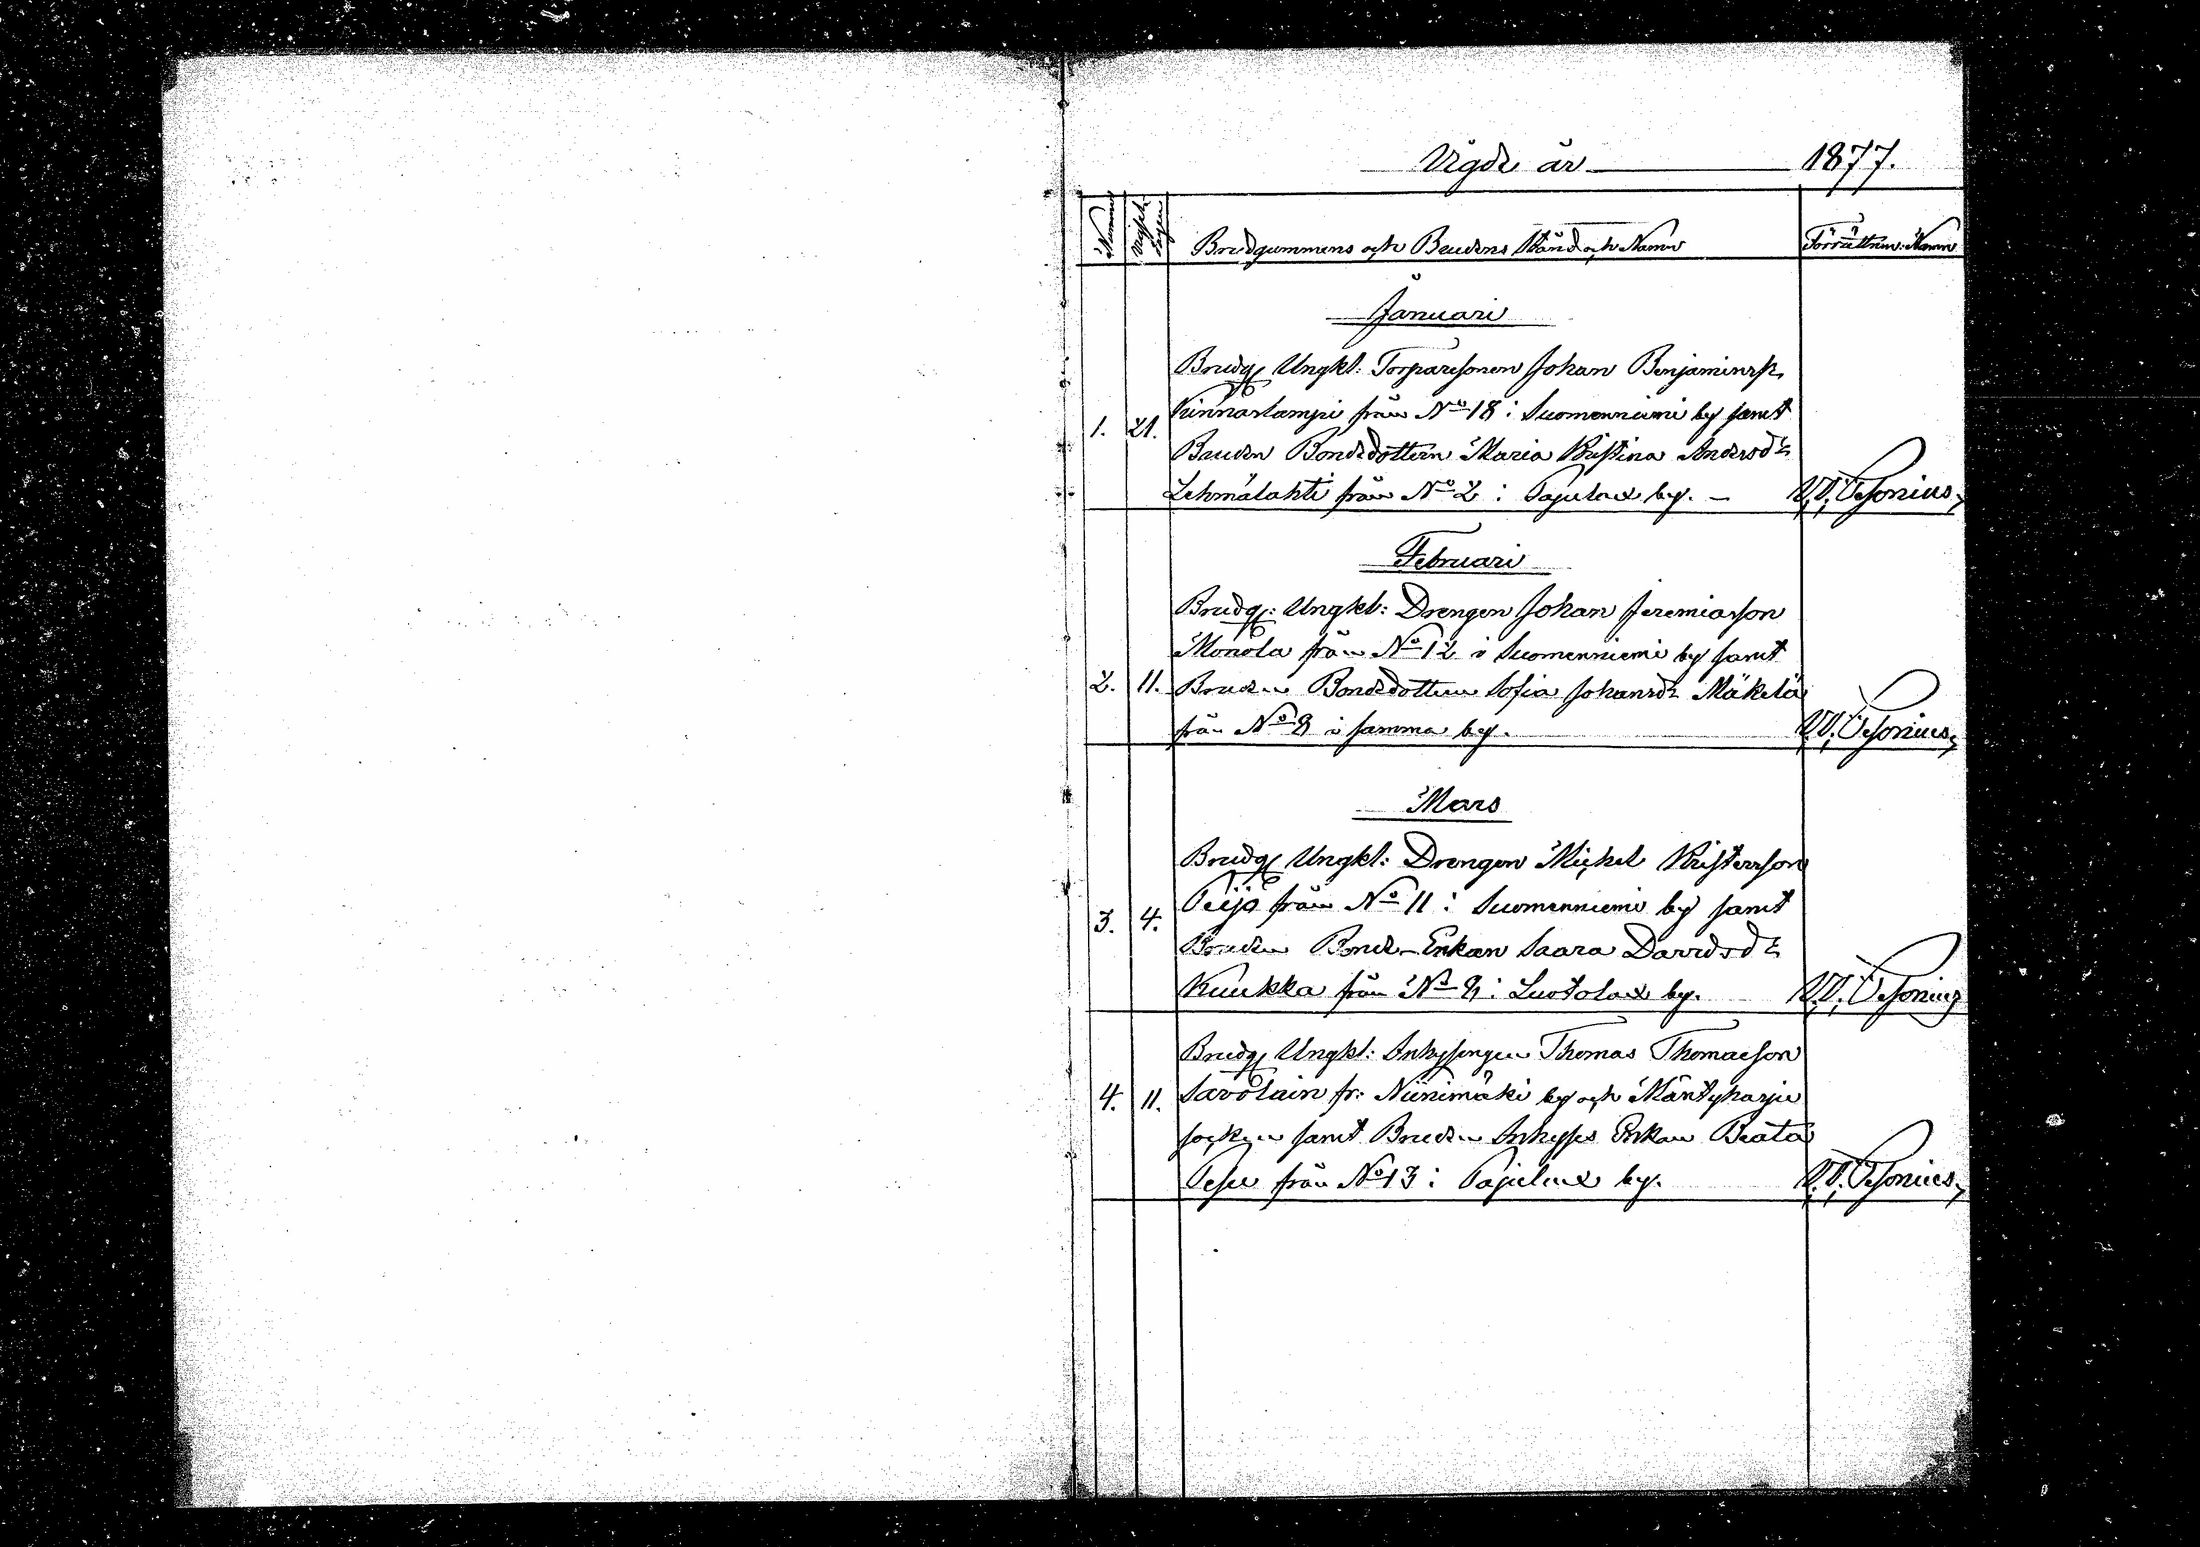 Vigde år 1877.
Nummer
Vigsel-
dagen
Brudgummens och Brudens Stånd och Namn
Förrättam: Namn
Januari
Brudg. Ungkl: Torparesonen Johan Benjaminss.
1. 21. Kinnarlampi från No 18 i Suomenniemi by samt
Bruden Bondedottern Maria Kristina Andersdr
Lehmälahti från No 2 i Pajulax by. –
Februari
Brudg: Ungkl: Drengen Johan Jeremiasson
Monola från No 12 i Suomenniemi by samt
2. 11. Bruden Bondedottern Sofia Johansdr Mäkelä
från No 8 i samma by.
Mars
Brudg. Ungkl: Drengen Michel Kristersson
från No 11 i Suomenniemi by samt
3. 4. Bruden Bonde-Enkan Saara Davidsdr
Kuukka från No i Luotolax by.
Brudg. Ungkl: Inhysingen Thomas Thomasson
4. 11. Savolain fr: Niinimäki by och Mäntyharju
socken samt Bruden Inhyses Enkan Beata
från No 13 i Pajulax by.